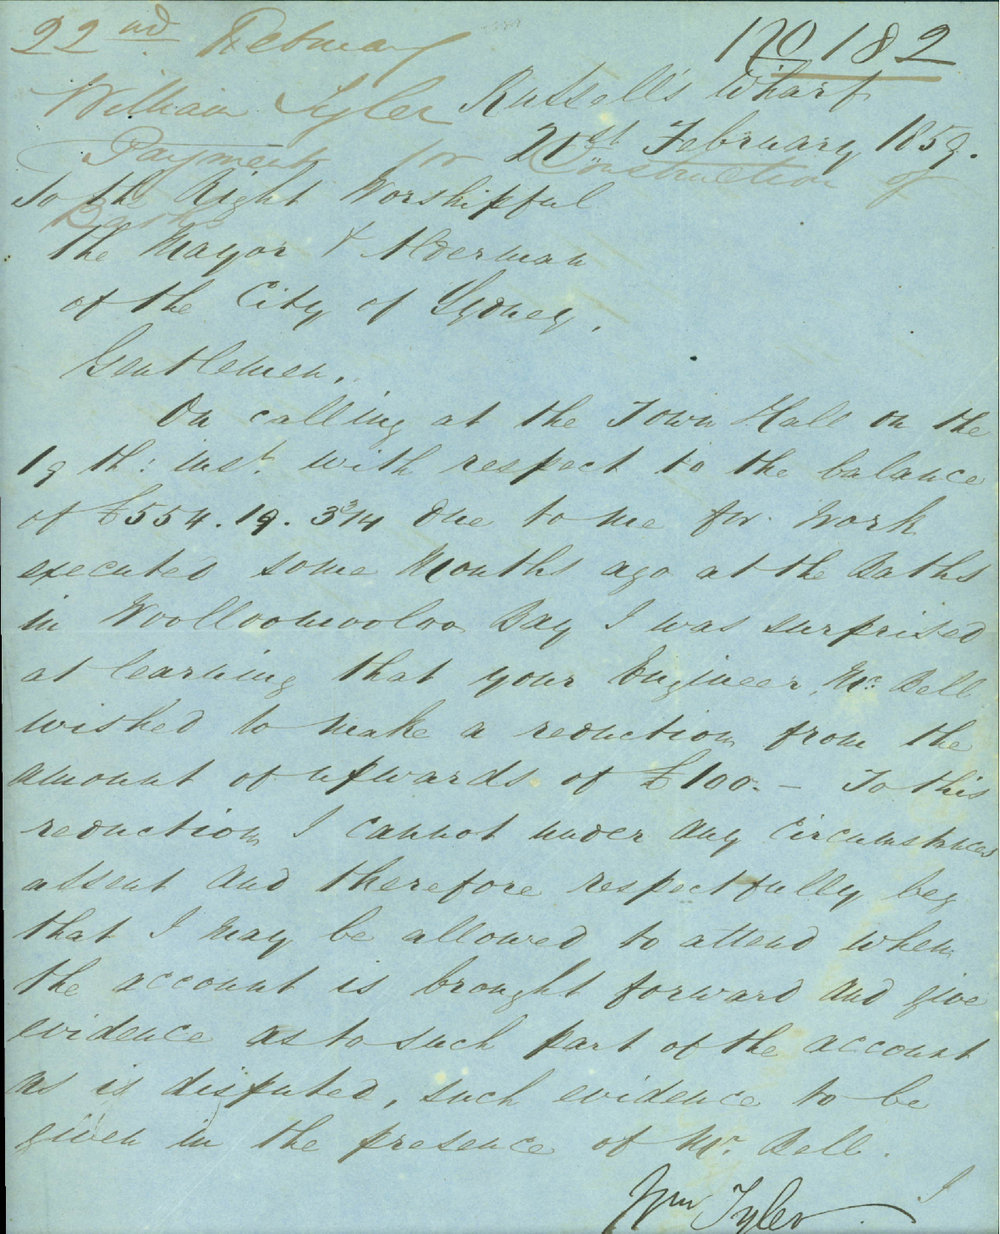 22nd February
No 182
William Tyler
Payment for Construction of
Baths
Russell's Wharf
21st February 1859.
To the Right Worshipful
the Mayor & Alderman
of the City of Sydney.
Gentlemen,
On calling at the Town Hall on the
19th: inst with respect to the balance
of £554.19.3 3/4 due to me for Work
executed some Months ago at the Baths
in Woolloomooloo Bay I was surprised
at learning that your Engineer, Mr. Bell
wished to make a reduction from the
amount of upwards of £100. — To this
reduction I cannot under any Circumstances
assent and therefore respectfully beg
that I may be allowed to attend when
the account is brought forward and give
evidence as to such part of the account
as is disputed, such evidence to be
given in the presence of Mr. Bell.
I
Wm Tyler